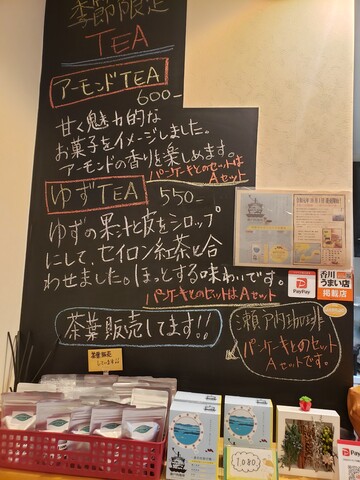 季節限定
TEA
アーモンドTEA
600-
甘く魅力的な
お菓子をイメージしました。
アーモンドの香りを楽しめます。
パンケーキとのセットは
Aセット
ゆずTEA
550-
ゆずの果汁と皮をシロップ
にして、セイロン紅茶と合
わせました。ほっとする味わいです。
パンケーキとのセットはAセット
茶葉販売してます!!
瀬戸内珈琲
パンケーキとのセット
Aセットです。
PayPay
香川
うまい店
掲載店
1,080
PayPay